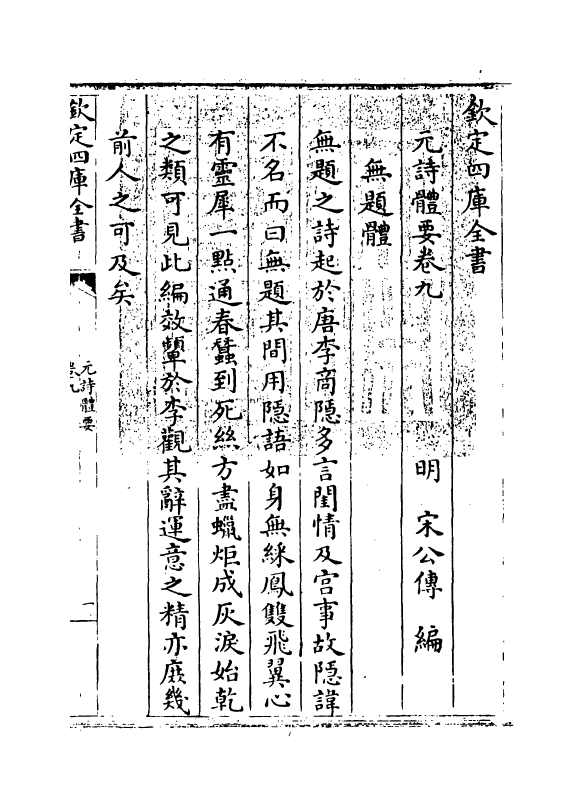 欽定四庫全書
元詩體要卷九
明 宋公傳 編
無題體
無題之詩起於唐李商隠多言閨情及宫事故隠諱
不名而曰無題其間用隠語如身無綵鳳雙飛翼心
有靈犀一點通春蠶到死絲方盡蠟炬成灰淚始乾
之類可見此編效顰於李觀其辭運意之精亦庶幾
前人之可及矣
欽定四庫全書
元詩體要
卷九
一